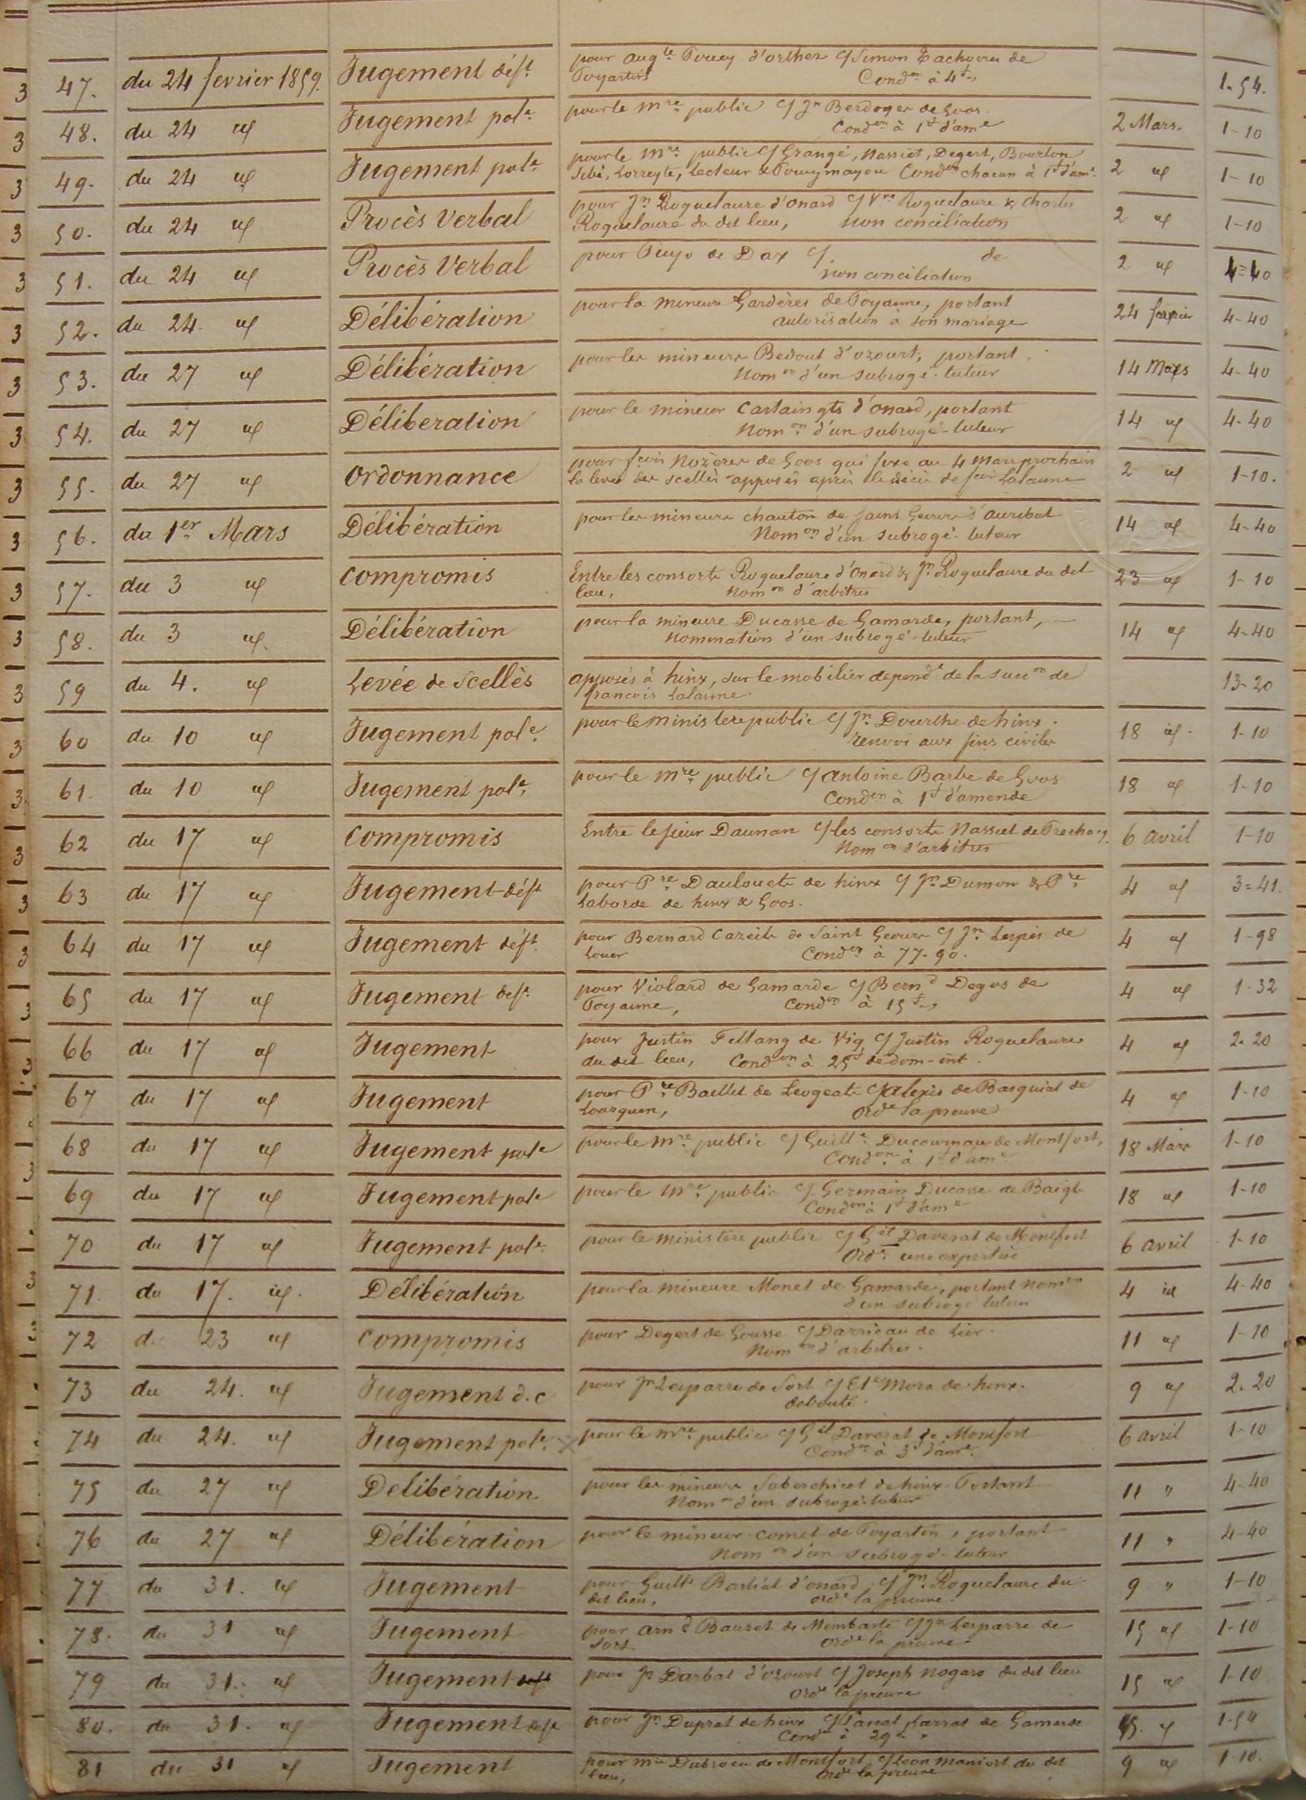 3 47. du 24 fevrier 1859. Jugement déft pour augte Poucy d'orthez c/ Simon Tachoires de 1-54.
Poyartin Condon à 4f
3 48. du 24 id Jugement pole pour le mre public c/ Jn Berdoger de Goos. 2 Mars. 1-10
Condon à 1f d'ame
3 49. du 24 id Jugement pole pour le mre public c/ Grangé, Nassiet, Degert, Bourlon 2 id 1-10
Sibé, Lorreyte, Lecteur & Poueymayou Condon chacun à 1f d'ame
3 50. du 24 id Procès verbal pour Jn Roquelaure d'onard c/ Vve Roquelaure & charles 2 id 1-10
Roquelaure du dit lieu, non conciliation
3 51. du 24 id Procès Verbal pour Puyo de Dax c/ de 2 id 4=40
non conciliation
3 52. du 24 id Délibération pour la mineure Gardères de Poyanne, portant 24 fevrier 4-40
autorisation à son mariage
3 53. du 27 id Délibération pour les mineurs Bedout d'ozourt, portant 14 Mars 4-40
Nomon d'un subrogé-tuteur
3 54. du 27 id Déliberation pour le mineur Castaingts d'onard, portant 14 id 4-40
Nomon d'un subrogé-tuteur
3 55. du 27 id ordonnance pour fcois Nozères de Goos qui fixe au 4 Mars prochain 2 id 1-10.
la levée des scellés apposés après le décès de fcois Lalanne
3 56. du 1er Mars Délibération pour les mineurs chauton de saint Geours d'auribat 14 id 4-40
Nomon d'un subrogé-tuteur
3 57. du 3 id compromis Entre les consorts Roquelaure d'onard & Jn Roquelaure du dit 23 id 1-10
lieu, Nomon d'arbitres
3 58. du 3 id Délibération pour la mineure Ducasse de Gamarde, portant, 14 id 4-40
nomination d'un subrogé-tuteur
3 59 du 4. id Levée de Scellés apposés à hinx, sur le mobilier dependt de la succon de 13-20
françois Lalanne.
3 60 du 10 id Jugement pole pour le ministere public c/ Jn Dourthe de hinx. 18 id. 1-10
renvoi aux fins civiles
3 61. du 10 id Jugement pole pour le mre public c/ antoine Barbe de Goos 18 id 1-10
Condon à 1f d'amende
3 62 du 17 id compromis Entre le sieur Daunan c/ les consorts Nassiet de Prechacq. 6 avril 1-10
Nomon d'arbitres
3 63 du 17 id Jugement déft pour Pre Daulouete de hinx c/ Jn Dumon & Pre 4 id 3=41.
Laborde de hinx & Goos.
3 64 du 17 id Jugement déft. pour Bernard Cazeils de Saint Geours c/ Jn Lespès de 4 id 1-98
Louer Condon à 77-90.
3 65 du 17 id Jugement deft. pour Violard de Gamarde c/ Bernd Degos de 4 id 1-32
Poyanne, Condon à 15f
66 du 17 id Jugement pour Justin Feltang de Vicq c/ Justin Roquelaure 4 id 2-20
du dit lieu, Condon à 25f de dom-int.
67 du 17 id Jugement pour Pre Baillet de Leogeats c/ alexis de Basquiat de 4 id 1-10
Lourquen, Orde la preuve
68 du 17 id Jugement pole pour le mre public c/ Guille Ducournau de Montfort, 18 Mars 1-10
Condon à 1f d'ame
69 du 17 id Jugement pole pour le mre public c/ Germain Ducasse de Baigts 18 id 1-10
Condon à 1f d'ame
70 du 17 id Jugement pole pour le ministère public c/ Gel Daverat de Montfort 6 avril 1-10
Orde une expertise
71. du 17. id. Délibération pour la mineure Monet de Gamarde, portant nomon 4 id 4-40
d'un subrogé tuteur
72 d. 23 id compromis pour Degert de Gousse c/ Darricau de Lier. 11 id 1-10
Nomon d'arbitres.
73 du 24. id Jugement d.c pour Jn Lesparre de Sort c/ Ete Mora de hinx. 9 id 2-20
debouté.
74 du 24. id Jugement pole pour le mre public c/ Gel Daverat de Montfort 6 avril 1-10
Condon à 3f d'ame
75 du 27 id Delibération pour les mineurs Suberchicot de hinx Portant 11 " 4-40
Nomon d'un subrogé-tuteur
76 du 27 id Délibération pour le mineur comet de Poyartin, portant 11 " 4-40
Nomon d'un subrogé-tuteur
77 du 31. id Jugement pour Guille Bastiat d'onard, c/ Jn Roquelaure du 9 " 1-10
dit lieu, orde la preuve.
78. du 31 id Jugement pour arnd Bauret de Mimbaste c/ Jn Lesparre de 15 id 1-10
Sort. Orde la preuve
79 du 31. id Jugement pour Jn Darbat d'ozourt c/ Joseph Nogaro du dit lieu 15 id 1-10
Orde la preuve
80. du 31. id Jugement déft pour Jn Duprat de hinx c/ Pascal Larrat de Gamarde 15. id 1-54
Condon à 29f
81 du 31 id Jugement pour mie Dubroca de Montfort, c/ Leon Maniort du dit 9 id 1-10.
lieu, Orde la preuve